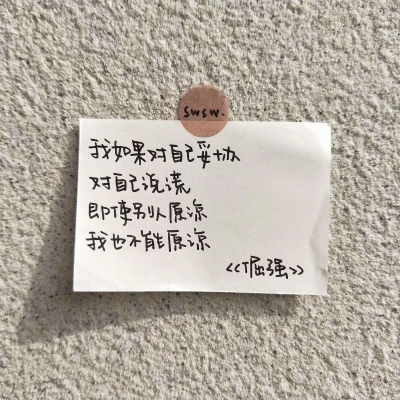 swsw.
我如果对自己妥协
对自己说谎
即使别人原谅
我也不能原谅
<<倔强>>